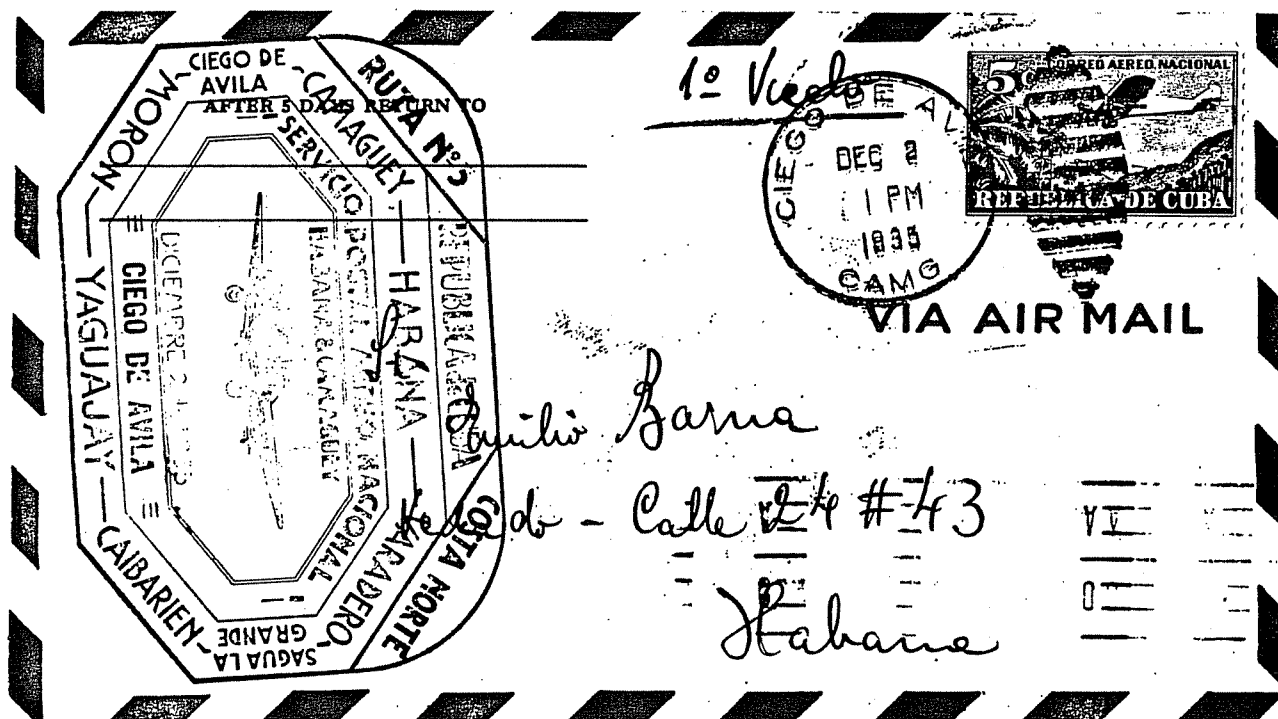 CIEGO DE AVILA - CAMAGUEY - HABANA - VARADERO - SAGUA LA GRANDE - CAIBARIEN - YAGUAJAY - MORON
RUTA Nº 3
COSTA NORTE
REPUBLICA DE CUBA
SERVICIO POSTAL AEREO NACIONAL
CIEGO DE AVILA
HABANA & CAMAGUEY
DICIEMBRE 2
AFTER 5 DAYS RETURN TO
1º Vuelo
CIEGO DE
DEC 2
1 PM
CAMG
5
CORREO AEREO NACIONAL
REPUBLICA DE CUBA
VIA AIR MAIL
Sr
Emilio Barna
Vedado - Calle 24 #43
Habana